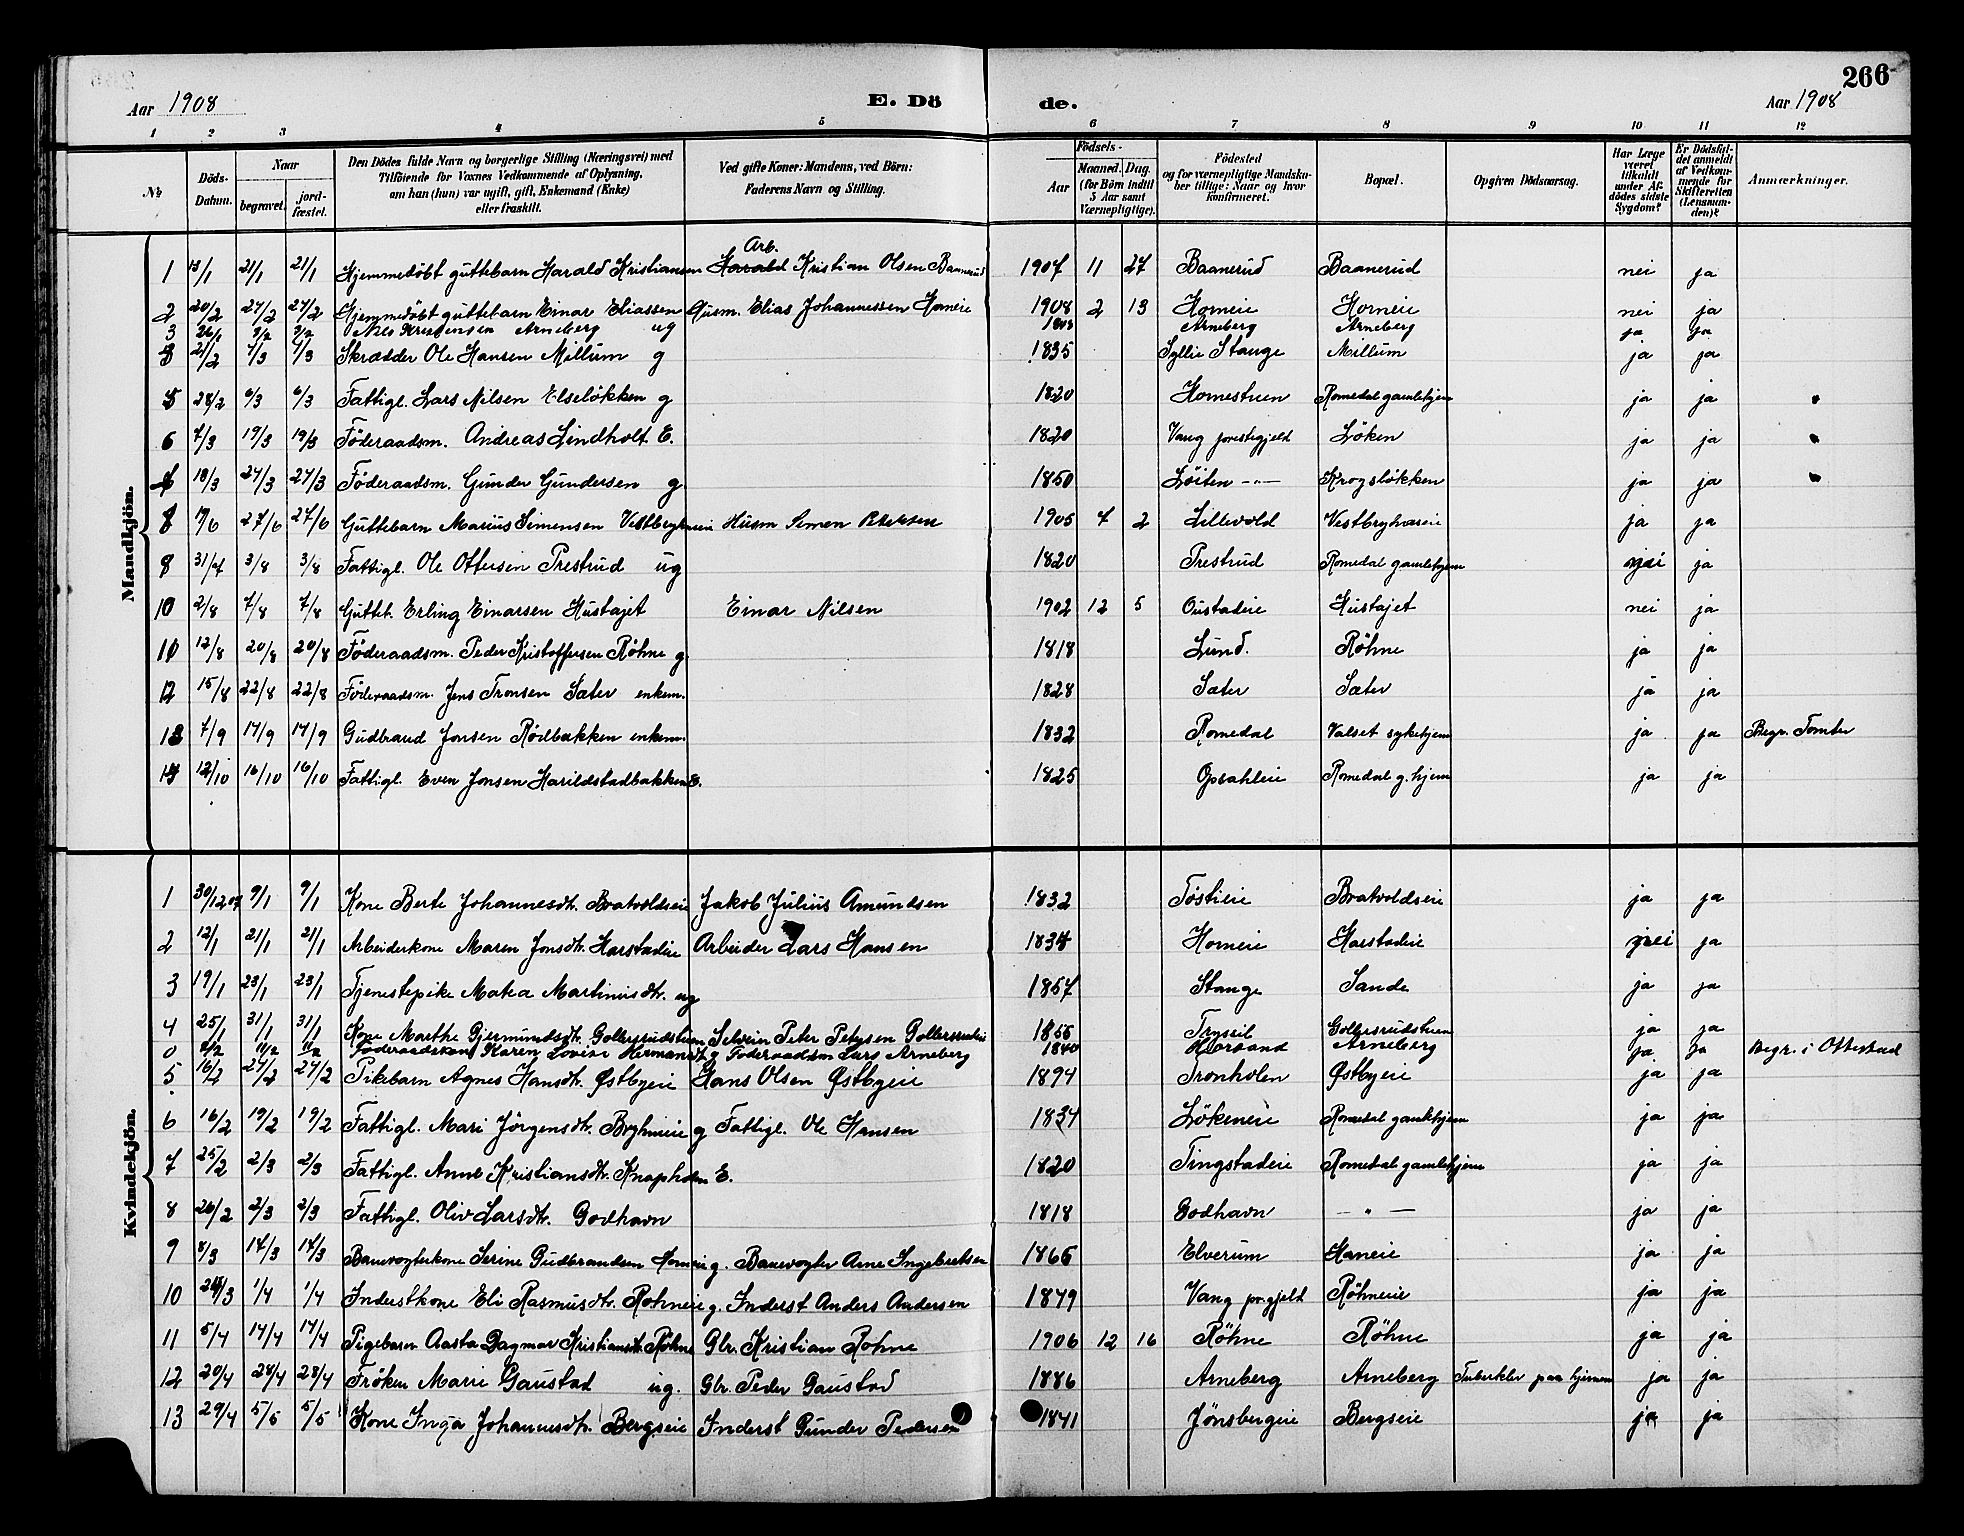 266
Aar 1908 E. Dö de. Aar 1908
1 2 3 4 5 6 7 8 9 10 11 12
№ Döds-Datum. Naar begravet. jordfæstet. Den Dödes fulde Navn og borgerlige Stilling (Næringsvei) med Tilföiende for Voxnes Vedkommende af Oplysning, om han (hun) var ugift, gift, Enkemand (Enke) eller fraskilt. Ved gifte Koner: Mandens, ved Börn: Faderens Navn og Stilling. Födsels- Aar Maaned. Dag. (for Börn indtil 5 Aar samt Værnepligtige). Födested og for værnepligtige Mandskaber tillige: Naar og hvor konfirmeret. Bopæl. Opgiven Dödsaarsag. Har Læge været tilkaldt under Afdödes sidste Sygdom? Er Dödsfaldet anmeldt af Vedkommende for Skifteretten (Lensmanden)? Anmærkninger.
Mandkjön.
1 13/1 21/1 21/1 Hjemmedøbt guttebarn Harald Kristiansen Arb. Kristian Olsen Baanerud 1907 11 27 Baanerud Baanerud nei ja
2 20/2 27/2 27/2 Hjemmedöbt guttebarn Einar Eliassen Husm. Elias Johannessen Horneie 1908 2 13 Horneie Horneie nei ja
3 26/1 3/2 3/2 Nils Kristensen Arneberg ug 1808 Arneberg Arneberg ja ja
21/2 4/3 4/3 Skrædder Ole Hansen Millum g 1835 Stange Millum ja ja
5 28/2 6/3 6/3 Fattigl. Lars Nilsen Elselökken g 1820 Homestuen Romedal gamlehjem ja ja
6 7/3 19/3 19/3 Föderaadsm. Andreas Lindholt E. 1820 Vang prestegjeld Löken ja ja
18/3 27/3 27/3 Föderaadsm. Gunder Gundersen g. 1850 Löiten -"- Krogslökken ja ja
8 17/6 27/6 27/6 Guttebarn Marius Simensen Husm Simen 1905 7 2 Lillevold ja ja
31/7 3/8 3/8 Fattigl. Ole Ottersen Prestrud ug 1820 Prestrud Romedal gamlehjem nei ja
10 2/8 7/8 7/8 Gutteb. Erling Einarsen Hustajet Einar Nilsen 1902 12 5 Oustadeie Hustajet nei ja
11 12/8 20/8 20/8 Föderaadsm. Peder Kristoffersen Röhne g. 1818 Lund. Röhne ja ja
12 15/8 22/8 22/8 Föderaadsm. Jens Tronsen Sæter enkem. 1828 Sæter Sæter ja ja
13 7/9 14/9 14/9 Gudbrand Jonsen Rödbakken enkem. 1832 Romedal Valset sykehjem ja ja Begr. Tomter
14 12/10 16/10 16/10 Fattigl. Even Jonsen Harildstadbakken E. 1825 Opsahleie Romedal g. hjem ja ja
Kvindekjön.
1 30/12 07 9/1 9/1 Kone Berte Johannesdtr. Bratvoldseie Jakob Julius Amundsen 1832 Töstieie Bratvoldseie ja ja
2 12/1 21/1 21/1 Arbeiderkone Maren Jonsdtr. Harstadeie Arbeider Lars Hansen 1834 Horneie Harstadeie nei ja
3 19/1 23/1 23/1 Tjenestepike Martinusdtr. ug 1857 Stange Sande ja ja
4 25/1 31/1 31/1 Kone Marthe Gjermundsdtr. Gollersrudstuen Peter 1855 Trysil Gollersrudstuen ja ja
0 4/2 11/2 11/2 Föderaadskone Karen Lovise Hermansdtr. g Föderaadsm Lars Arneberg 1840 Arneberg ja ja Begr. i Ottestad
5 16/2 27/2 27/2 Pikebarn Agnes Hansdtr. Østbyeie Hans Olsen Østbyeie 1894 Tronholen Østbyeie ja ja
6 16/2 19/2 19/2 Fattigl. Mari Jörgensdtr. Bryhnieie g Fattigl. Ole Hansen 1834 Lökeneie Romedal gamlehjem ja ja
7 25/2 2/3 2/3 Fattigl. Anne Kristiansdtr. Knapholen E. 1820 Tingstadeie Romedal gamlehjem ja ja
8 26/2 2/3 2/3 Fattigl. Oliv Larsdtr. Godhavn 1818 Godhavn — " — ja ja
9 8/3 14/3 14/3 Banevogterkone Serine Gudbrandsen Horneie g. Banevogter Arne Ingebretsen 1865 Elverum Horneie ja ja
10 24/3 1/4 1/4 Inderstkone Eli Rasmusdtr. Röhneie g. Inderst Anders Andersen 1849 Vang pr.gjeld Röhneie ja ja
11 5/4 14/4 14/4 Pigebarn Aasta Dagmar Kristiansdtr. Röhne Gbr. Kristian Röhne 1906 12 16 Röhne Röhne ja ja
12 20/4 28/4 28/4 Fröken Marie Gaustad ug. Gbr. Peder Gaustad 1886 Arneberg Arneberg Tuberkler paa hjernen ja ja
13 29/4 5/5 5/5 Kone Inga Johannesdtr. Bergseie Inderst Gunder Pedersen 1841 Jønsbergeie Bergseie ja ja